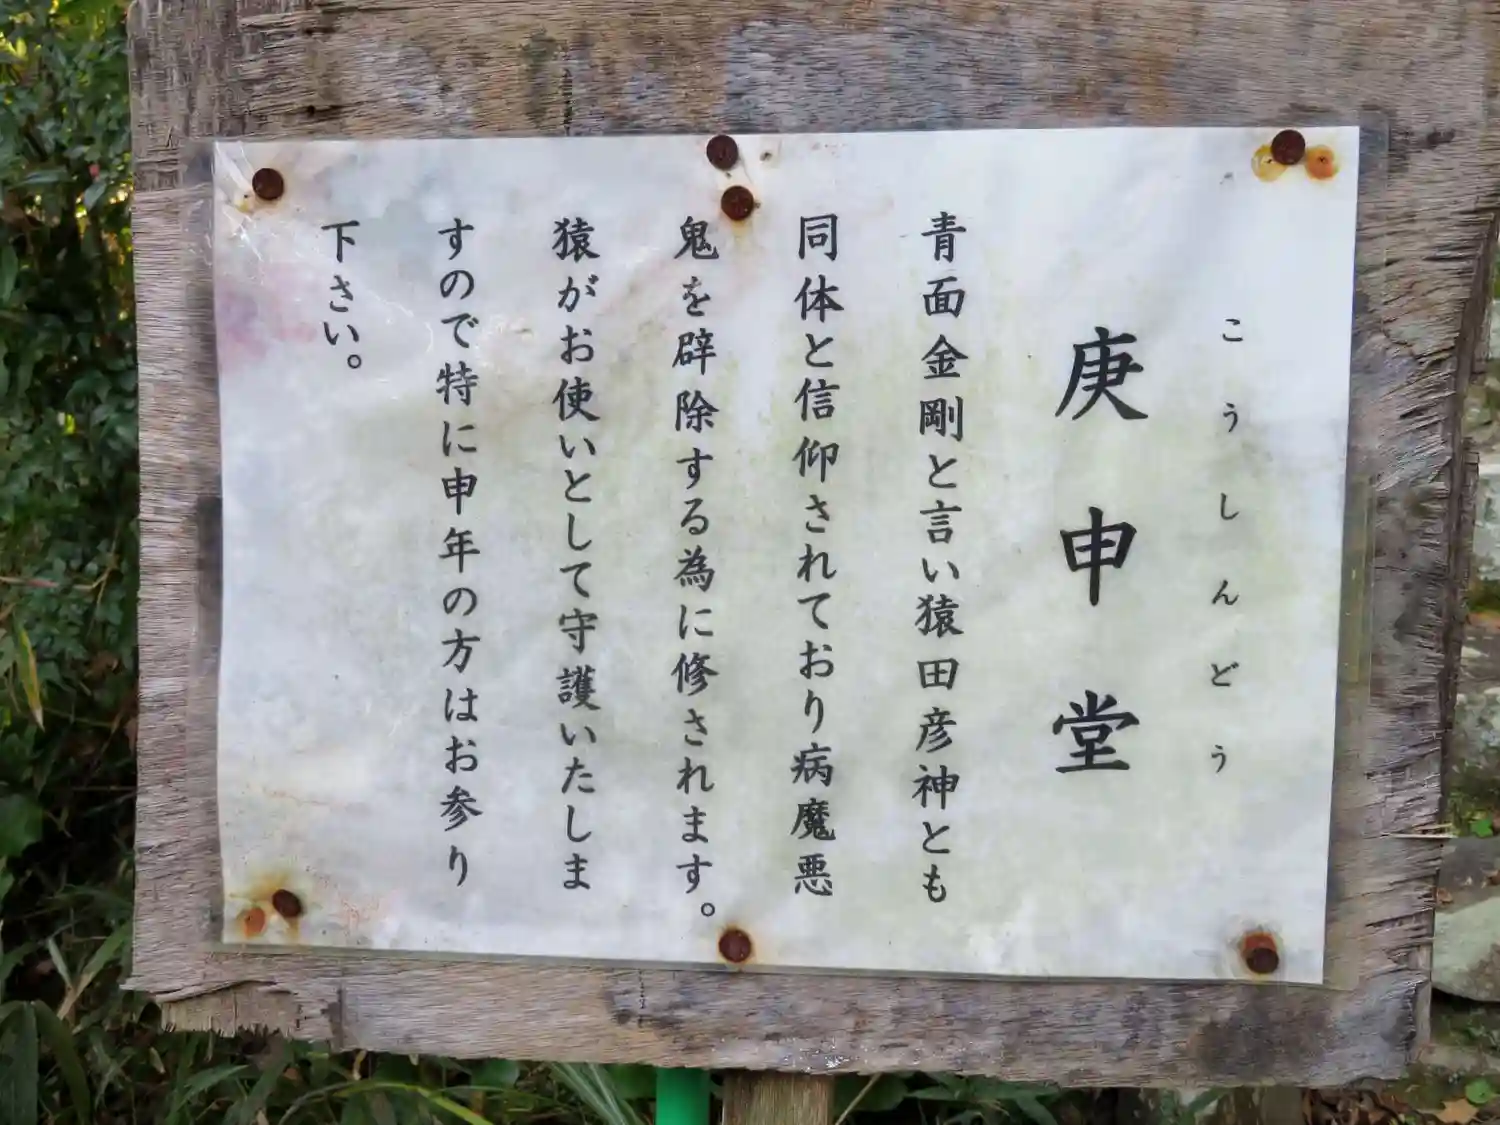 こうしんどう
庚申堂
青面金剛と言い猿田彦神とも
同体と信仰されており病魔悪
鬼を辟除する為に修されます。
猿がお使いとして守護いたしま
すので特に申年の方はお参り
下さい。